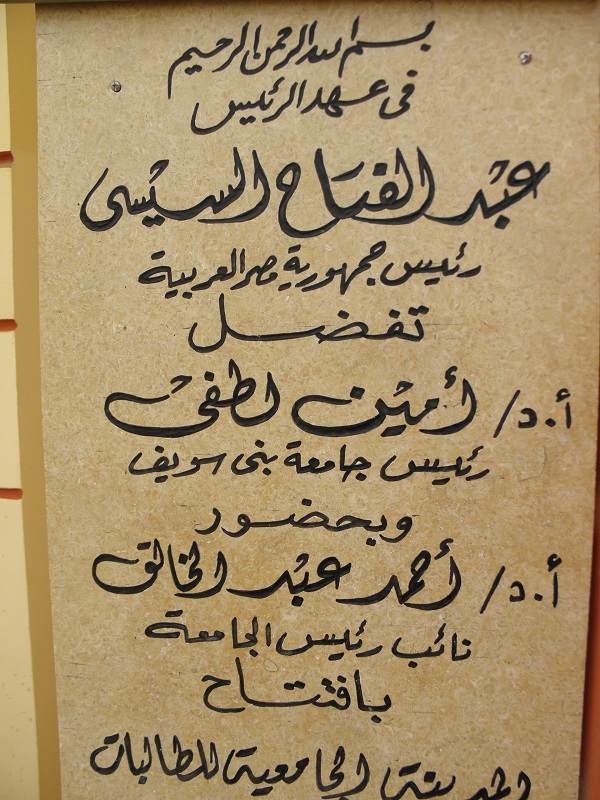 بسم الله الرحمن الرحيم
فى عهد الرئيس
عبد الفتاح السيسى
رئيس جمهورية مصر العربية
تفضل
أ.د/ أمين لطفى
رئيس جامعة بنى سويف
وبحضور
أ.د/ أحمد عبد الخالق
نائب رئيس الجامعة
بافتتاح
المدينة الجامعية للطالبات